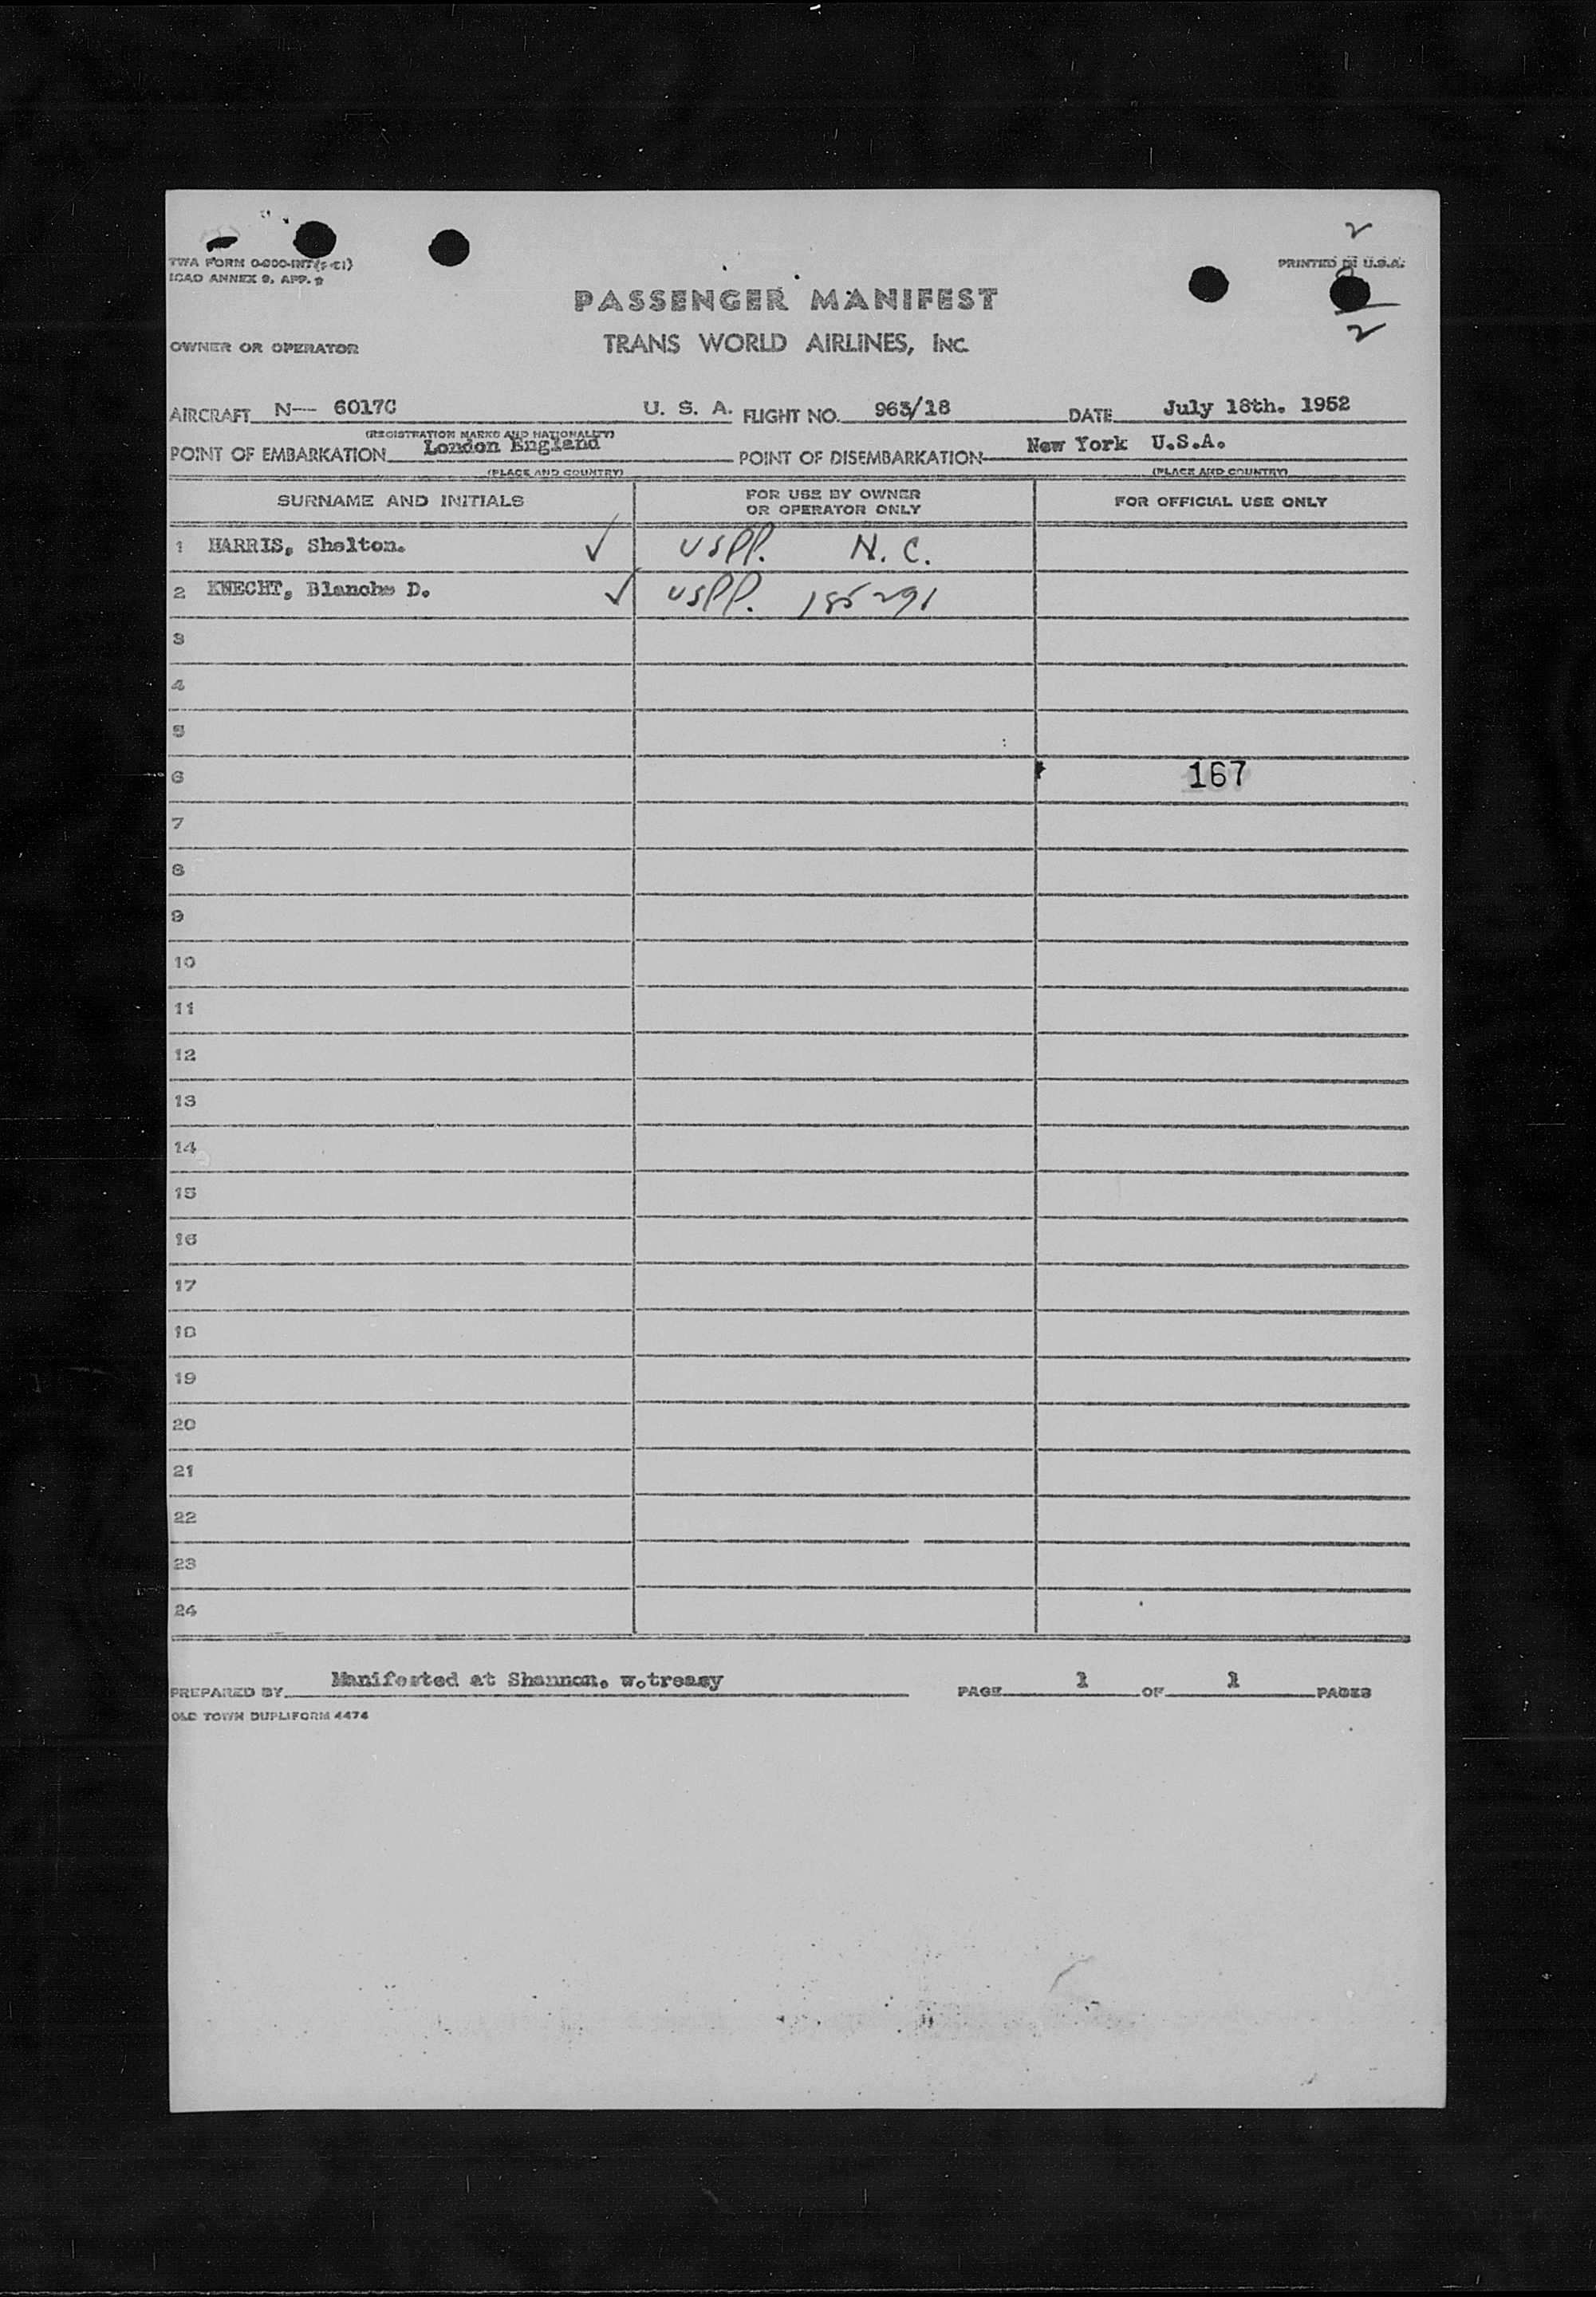 2
TWA FORM 0-900-INT
ICAO ANNEX 9, APP. 2
PRINTED IN U.S.A.
PASSENGER MANIFEST
2
OWNER OR OPERATOR
TRANS WORLD AIRLINES, INC.
AIRCRAFT N-- 6017C U. S. A. FLIGHT NO. 963/18 DATE July 18th. 1952
(REGISTRATION MARKS AND NATIONALITY)
POINT OF EMBARKATION London England POINT OF DISEMBARKATION New York U.S.A.
(PLACE AND COUNTRY) (PLACE AND COUNTRY)
SURNAME AND INITIALS FOR USE BY OWNER OR OPERATOR ONLY FOR OFFICIAL USE ONLY
1 HARRIS, Shelton. ✓ USPP. N.C.
2 KNECHT, Blanche D. ✓ USPP. 185291
3
4
5
6 167
7
8
9
10
11
12
13
14
15
16
17
18
19
20
21
22
23
24
PREPARED BY Manifested at Shannon. w.treasy PAGE 1 OF 1 PAGES
OLD TOWN DUPLIFORM 4474